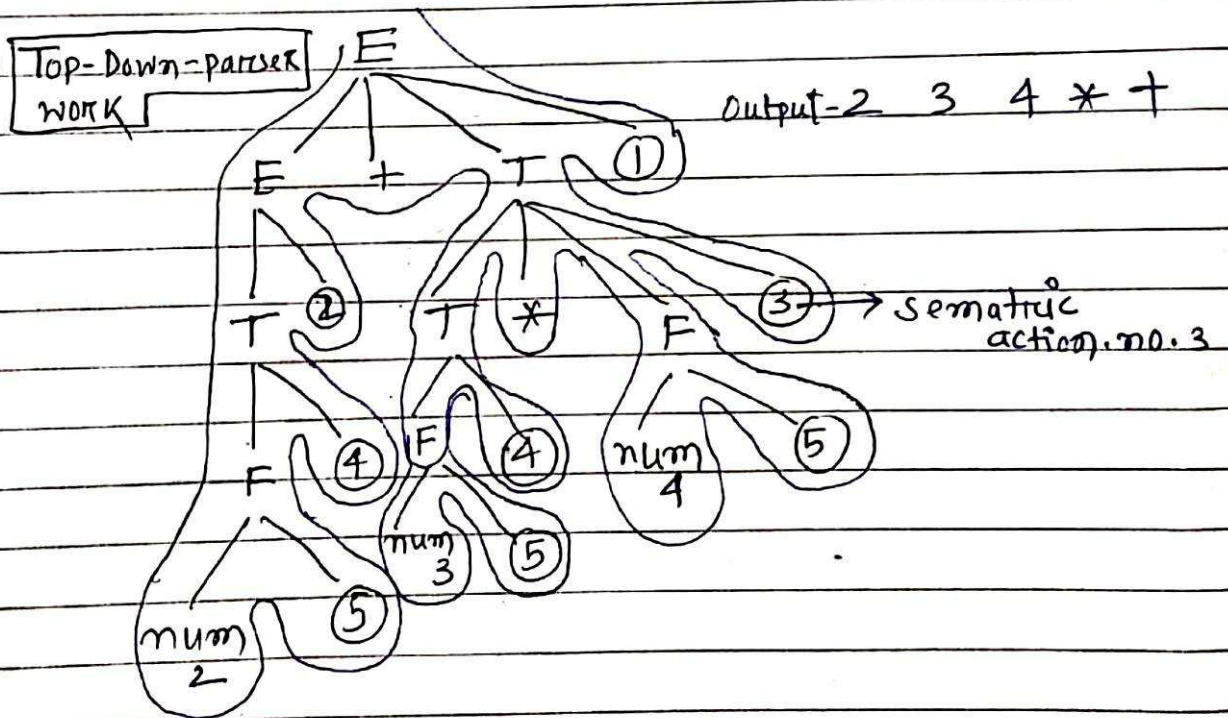 Top-Down-parser E
work
Output - 2 3 4 * +
E + T ①
T ② T * F ③ → sematric
action. no. 3
F ④ F ④ num 4 ⑤
num 3 ⑤
num 2 ⑤